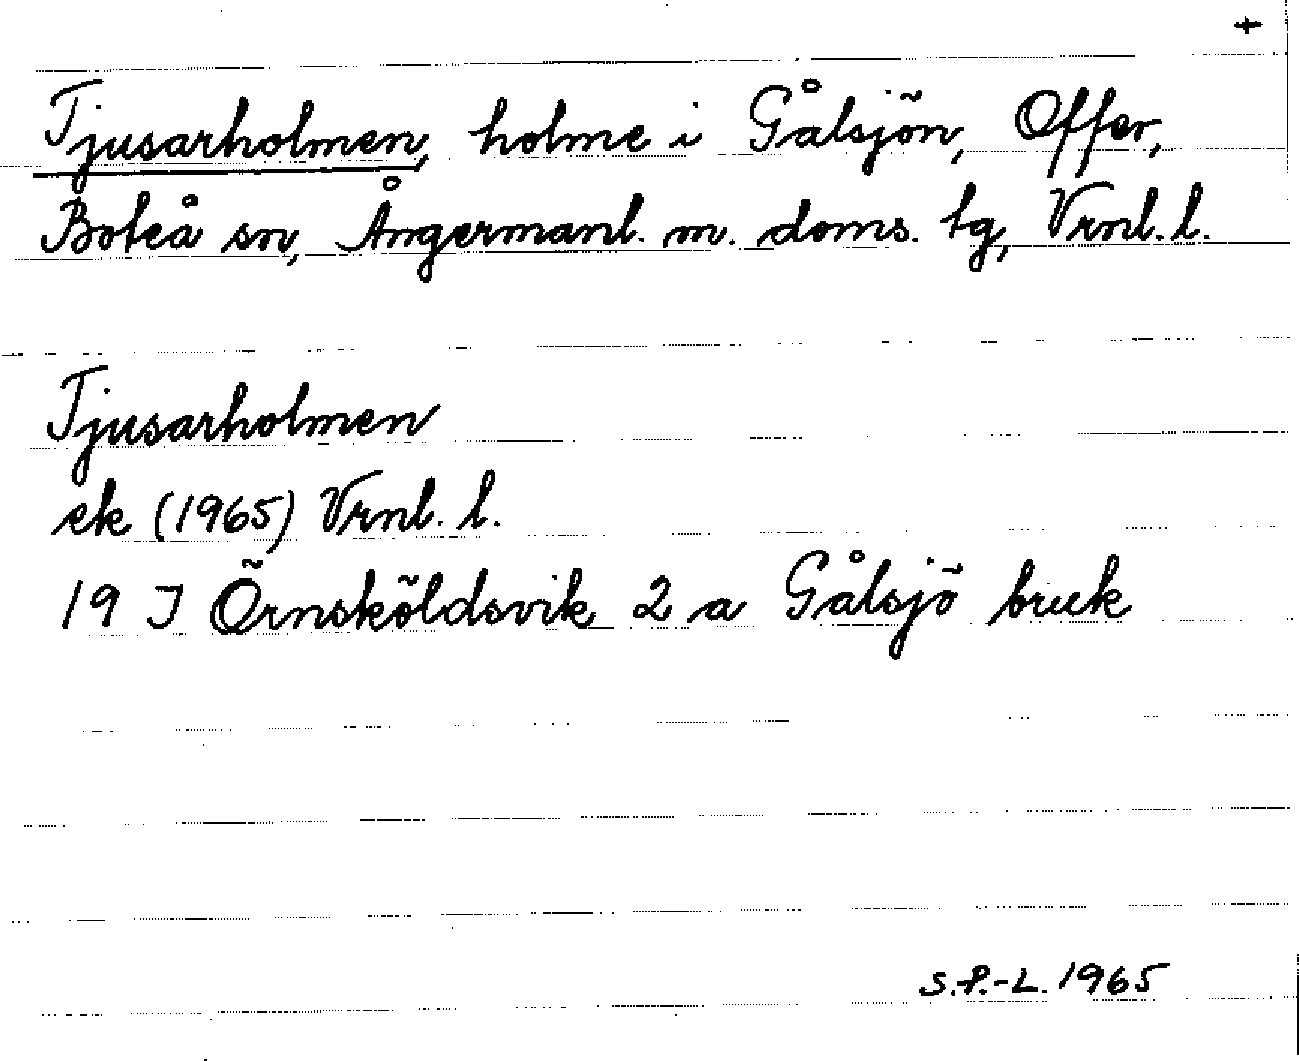 +
Tjusarholmen, holme i Gålsjön, Offer,
Boteå sn, Ångermanl. m. doms. tg, Vrnl. l.
Tjusarholmen
ek (1965) Vrnl. l.
19 I Örnsköldsvik 2 a Gålsjö bruk
S.P.-L. 1965